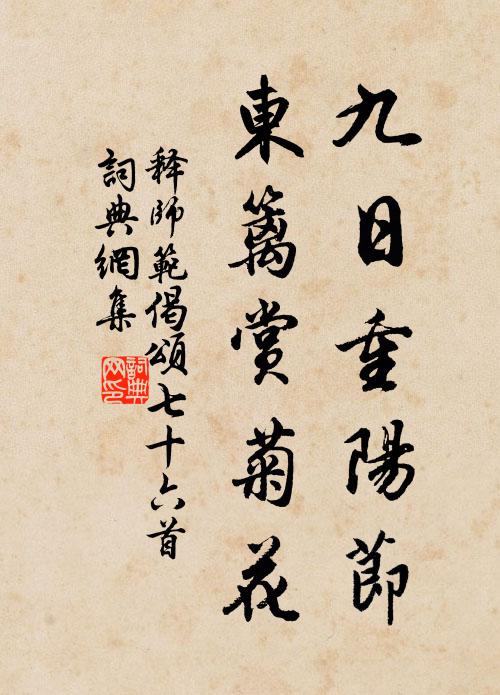 九日重陽節
東籬賞菊花
释師範偈頌七十六首
詞典網集
詞典
网印